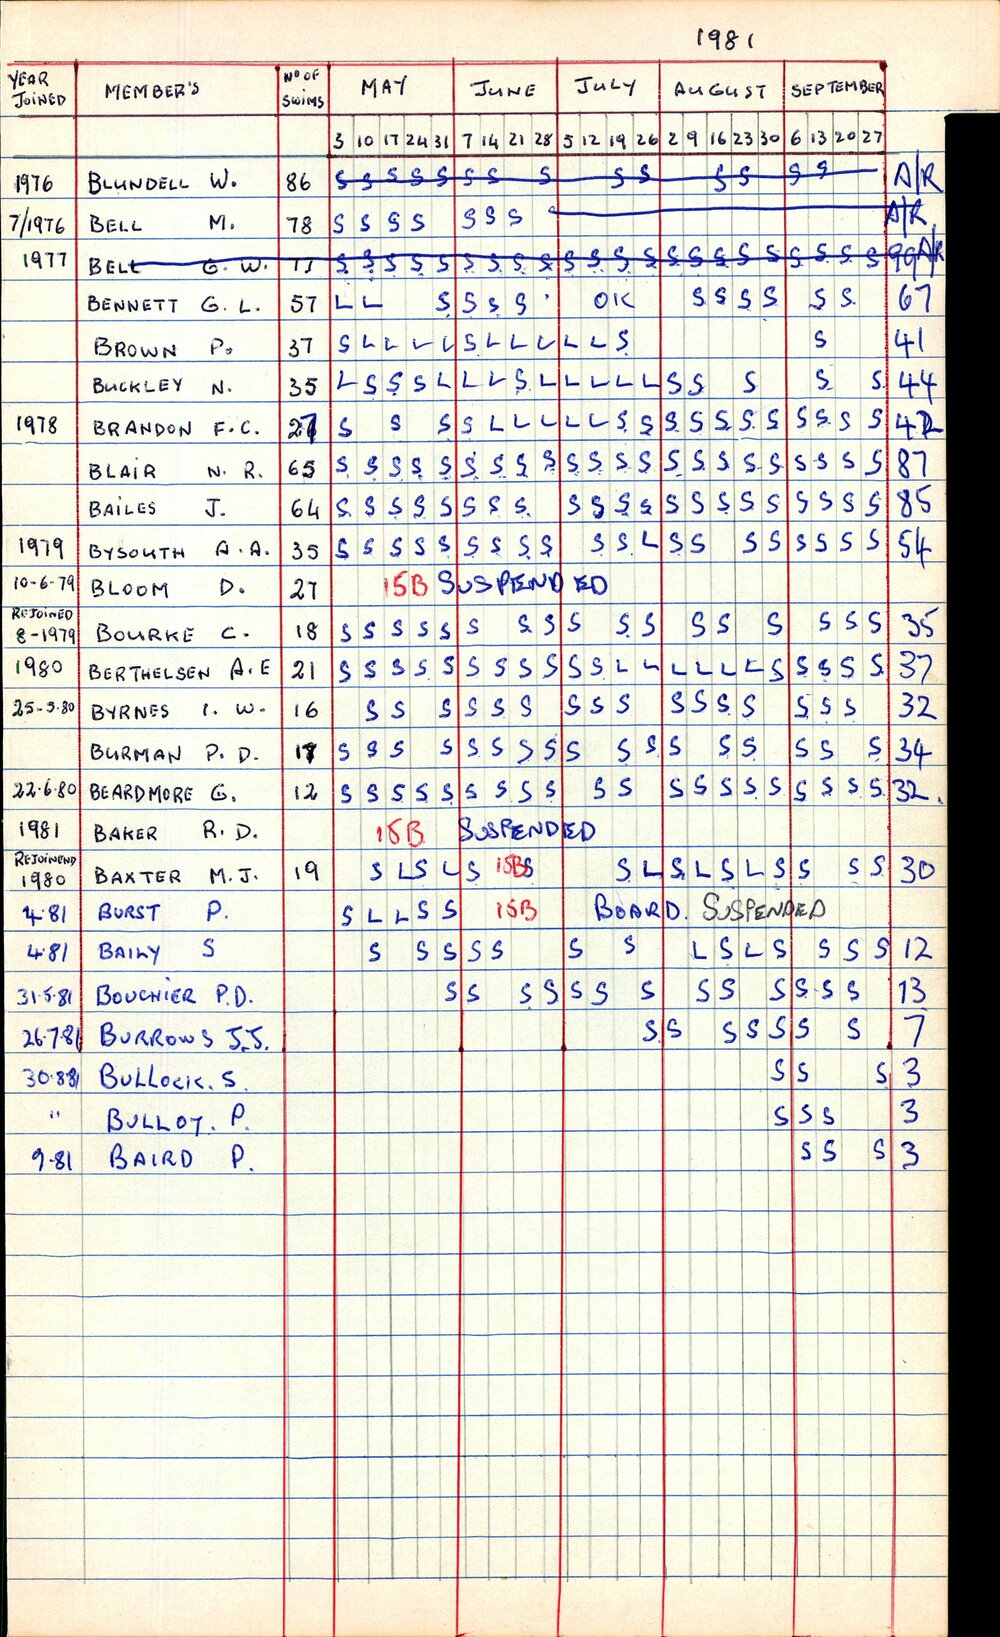 1981
YEAR JOINED MEMBER'S Nº OF SWIMS MAY JUNE JULY AUGUST SEPTEMBER
3 10 17 24 31 7 14 21 28 5 12 19 26 2 9 16 23 30 6 13 20 27
1976 BLUNDELL W. 86 S S S S S S S S S S S S S S A/R
7/1976 BELL M. 78 S S S S S S S A/R
1977 BELL G. W. S S S S S S S S S S S S S S S S S S S S S S 99 A/R
BENNETT G. L. 57 L L S S S S OK S S S S S S 67
BROWN P. 37 S L L L L S L L L L L S S 41
BUCKLEY N. 35 L S S S L L L S L L L L L S S S S S 44
1978 BRANDON F.C. S S S S L L L L L S S S S S S S S S S S 42
BLAIR N. R. 65 S S S S S S S S S S S S S S S S S S S S S S 87
BAILES J. 64 S S S S S S S S S S S S S S S S S S S S S 85
1979 BYSOUTH A.A. 35 S S S S S S S S S S S L S S S S S S S S 54
10-6-79 BLOOM D. 27 15B SUSPENDED
REJOINED 8-1979 BOURKE C. 18 S S S S S S S S S S S S S S S S S 35
1980 BERTHELSEN A.E 21 S S S S S S S S S S S L L L L L L S S S S S 37
25-5-80 BYRNES I. W. 16 S S S S S S S S S S S S S S S S 32
BURMAN P. D. 17 S S S S S S S S S S S S S S S S S 34
22.6.80 BEARDMORE G. 12 S S S S S S S S S S S S S S S S S S S S 32.
1981 BAKER R. D. 15B SUSPENDED
REJOINEND 1980 BAXTER M.J. 19 S L S L S 15B S S L S L S L S S S S 30
4.81 BURST P. S L L S S 15B BOARD. SUSPENDED
4.81 BAILY S S S S S S S S L S L S S S S 12
31.5.81 BOUCHIER P.D. S S S S S S S S S S S S S 13
26.7.81 BURROWS J.J. S S S S S S S 7
30.8.81 BULLOCK. S. S S S 3
" BULLOT. P. S S S 3
9.81 BAIRD P. S S S 3